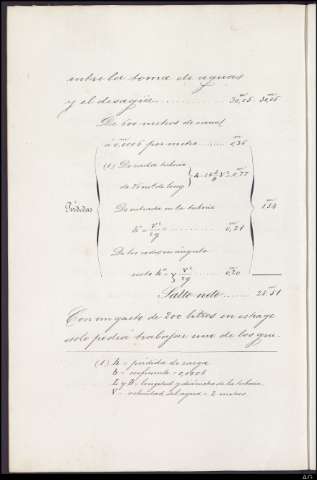 entre la toma de aguas
y el desagüe ........... 30,05 30,05
De 600 metros de canal
á 0,0006 por metro ....... 0,36
(1) De
de long
Pérdidas
De entrada en la tubería
h'' = V²/2g = ........... 0,21
1,54
De los codos en ángulo
recto h''' = V²/2g ......... 0,20
Salto neto ........ 28,51
Con un gasto de 200 litros en estiage
solo podrá trabajar una de los que
(1) h = pérdida de carga
b = coeficiente = 0,0006
L y D = longitud y diámetro de la tubería
V = velocidad del agua = 2 metros